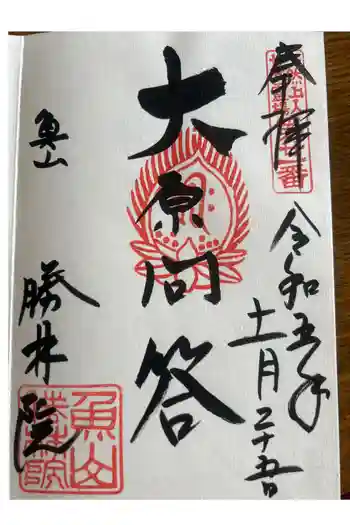 奉拝
令和五年
十一月二十五日
大原問答
魚山
勝林院
魚山
勝林院